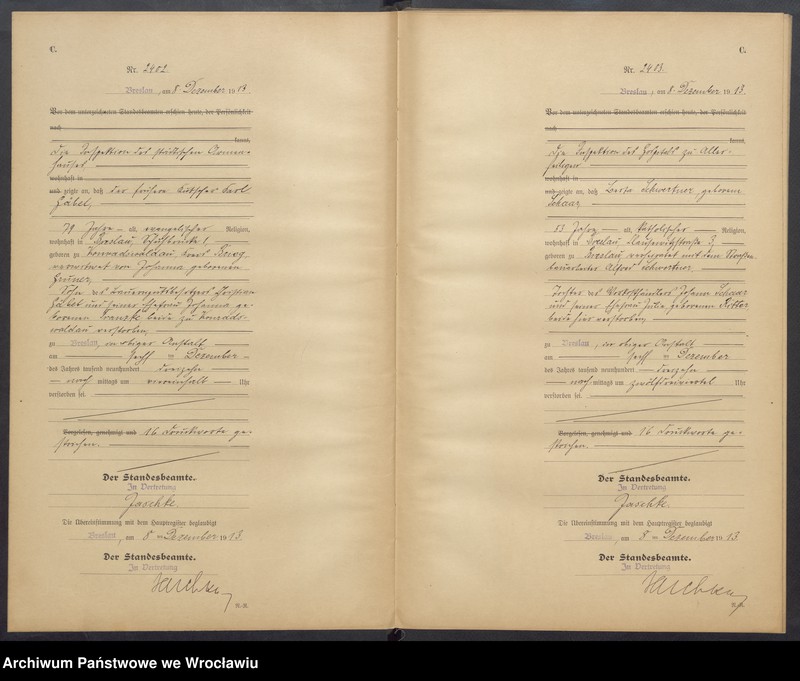 C.
Nr. 2402
Breslau, am 8. Dezember 1913.
Vor dem unterzeichneten Standesbeamten erschien heute, der Persönlichkeit
nach
kannt,
Die Inspektion des städtischen Armen-
hauses
wohnhaft in
und zeigte an, daß der frühere Kutscher Karl
Zäbel,
79 Jahre alt, evangelischer Religion,
wohnhaft in Breslau, Schuhbrücke
geboren zu Konradswaldau Kreis Brieg,
verwitwet von Johanna geborenen
Sohn des Bauerngutsbesitzers Christian
Zäbel und seiner Ehefrau Johanna ge-
borenen beide zu Konrads-
waldau verstorben,
zu Breslau, in obiger Anstalt
am Dezember
des Jahres tausend neunhundert dreizehn
nach mittags um Uhr
verstorben sei.
Vorgelesen, genehmigt und 16 Druckworte ge-
strichen.
Der Standesbeamte.
In Vertretung
Jaschke.
Die Übereinstimmung mit dem Hauptregister beglaubigt
Breslau, am 8. Dezember 1913.
Der Standesbeamte.
In Vertretung
Jaschke
C.
Nr. 2403.
Breslau, am 8. Dezember 1913.
Vor dem unterzeichneten Standesbeamten erschien heute, der Persönlichkeit
nach
kannt,
Die Inspektion des Hospitals zu Aller-
heiligen
wohnhaft in
und zeigte an, daß Berta Schwertner, geborene
Schaar,
53 Jahre alt, katholischer Religion,
wohnhaft in Breslau,
geboren zu Breslau, verheiratet mit dem
Alfred Schwertner,
Tochter des Johann Schaar
und seiner Ehefrau Julie, geborenen Ritter,
beide hier verstorben,
zu Breslau, in obiger Anstalt
am Dezember
des Jahres tausend neunhundert dreizehn
nach mittags um zwölfdreiviertel Uhr
verstorben sei.
Vorgelesen, genehmigt und 16 Druckworte ge-
strichen.
Der Standesbeamte.
In Vertretung
Jaschke.
Die Übereinstimmung mit dem Hauptregister beglaubigt
Breslau, am 8. Dezember 1913.
Der Standesbeamte.
In Vertretung
Jaschke
Archiwum Państwowe we Wrocławiu